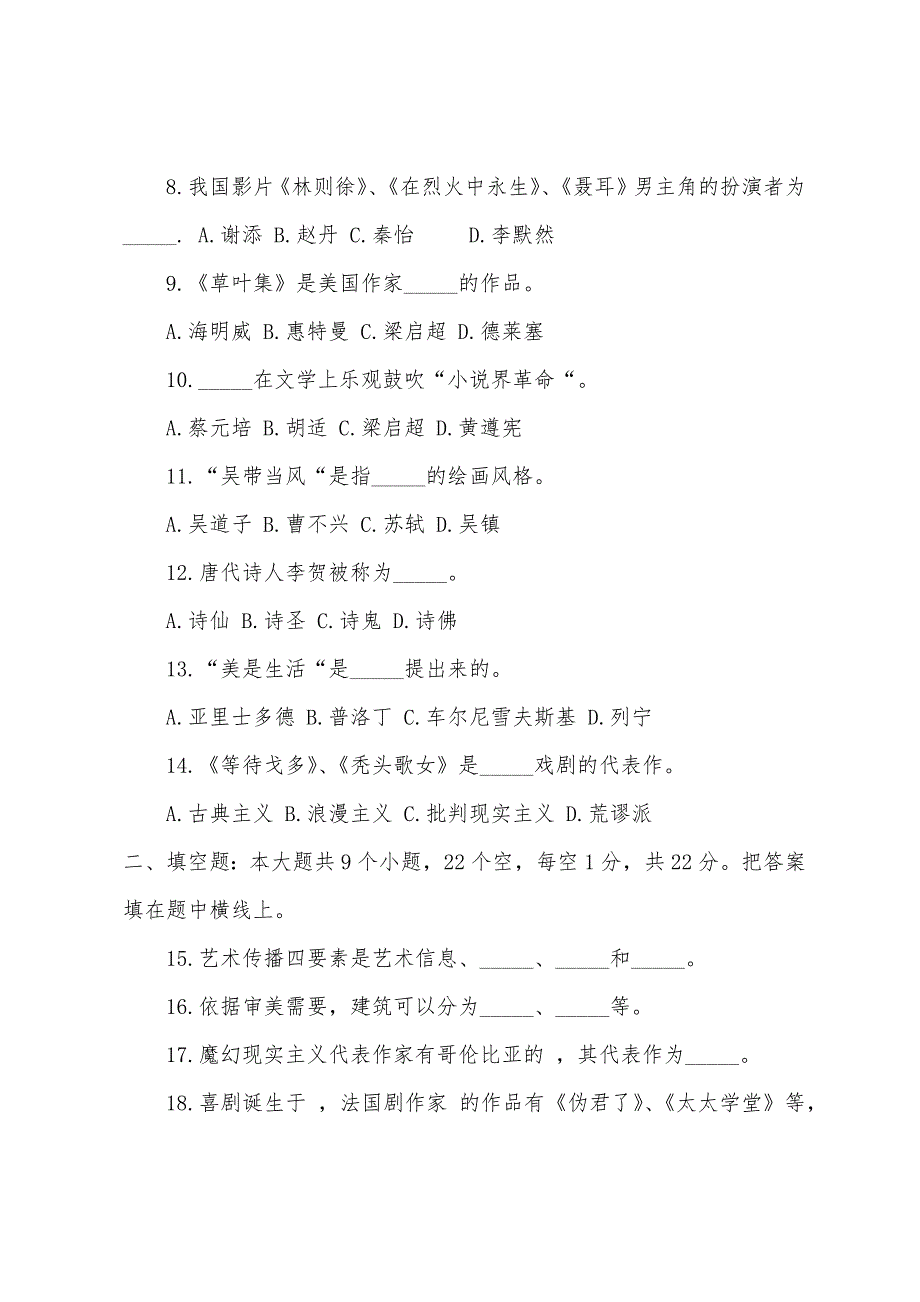 8.我国影片《林则徐》、《在烈火中永生》、《聂耳》男主角的扮演者为
_____. A.谢添 B.赵丹 C.秦怡 D.李默然
9.《草叶集》是美国作家_____的作品。
A.海明威 B.惠特曼 C.梁启超 D.德莱塞
10._____在文学上乐观鼓吹“小说界革命“。
A.蔡元培 B.胡适 C.梁启超 D.黄遵宪
11.“吴带当风“是指_____的绘画风格。
A.吴道子 B.曹不兴 C.苏轼 D.吴镇
12.唐代诗人李贺被称为_____。
A.诗仙 B.诗圣 C.诗鬼 D.诗佛
13.“美是生活“是_____提出来的。
A.亚里士多德 B.普洛丁 C.车尔尼雪夫斯基 D.列宁
14.《等待戈多》、《秃头歌女》是_____戏剧的代表作。
A.古典主义 B.浪漫主义 C.批判现实主义 D.荒谬派
二、填空题：本大题共9个小题，22个空，每空1分，共22分。把答案
填在题中横线上。
15.艺术传播四要素是艺术信息、_____、_____和_____。
16.依据审美需要，建筑可以分为_____、_____等。
17.魔幻现实主义代表作家有哥伦比亚的 ，其代表作为_____。
18.喜剧诞生于 ，法国剧作家 的作品有《伪君了》、《太太学堂》等，